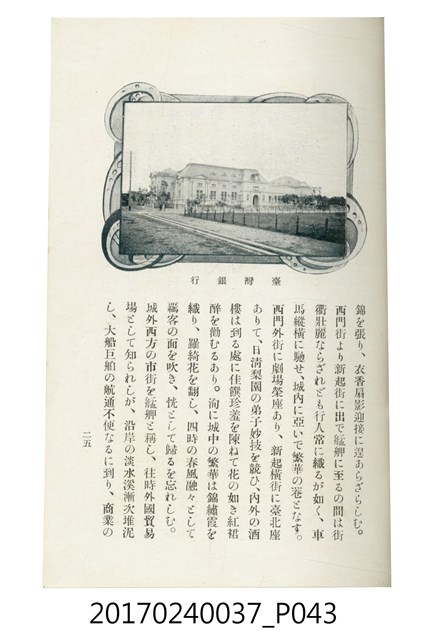 行銀灣臺
錦を張り、衣香扇影迎接に遑あらざらしむ。
西門街より新起街に出で艋舺に至るの間は街
衢壯麗ならざれども行人常に織るが如く、車
馬縱橫に馳せ、城內に亞いで繁華の巷となす。
西門外街に劇場榮座あり、新起橫街に臺北座
ありて、日淸梨園の弟子妙技を競ひ、內外の酒
樓は到る處に佳饌珍羞を陳ねて花の如き紅裙
醉を勸むるあり。洵に城中の繁華は錦繡霞を
織り、羅綺花を翻し、四時の春風融々として
覊客の面を吹き、恍として歸るを忘れしむ。
城外西方の市街を艋舺と稱し、往時外國貿易
場として知られしが、沿岸の淡水溪漸次堆泥
し、大船巨舶の航通不便なるに到り、商業の
二五
20170240037_P043